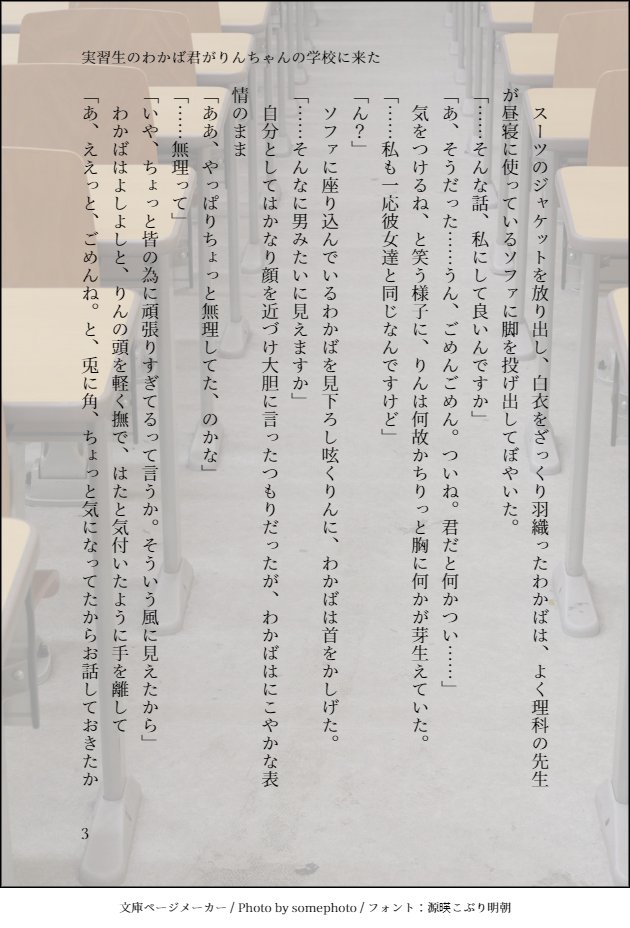 実習生のわかば君がりんちゃんの学校に来た
　スーツのジャケットを放り出し、白衣をざっくり羽織ったわかばは、よく理科の先生
が昼寝に使っているソファに脚を投げ出してぼやいた。
「……そんな話、私にして良いんですか」
「あ、そうだった……うん、ごめんごめん。ついね。君だと何かつい……」
　気をつけるね、と笑う様子に、りんは何故かちりっと胸に何かが芽生えていた。
「……私も一応彼女達と同じなんですけど」
「ん？」
「……そんなに男みたいに見えますか」
　ソファに座り込んでいるわかばを見下ろし呟くりんに、わかばは首をかしげた。
　自分としてはかなり顔を近づけ大胆に言ったつもりだったが、わかばはにこやかな表
情のまま
「ああ、やっぱりちょっと無理してた、のかな」
「……無理って」
「いや、ちょっと皆の為に頑張りすぎてるって言うか。そういう風に見えたから」
　わかばはよしよしと、りんの頭を軽く撫で、はたと気付いたように手を離して
「あ、ええっと、ごめんね。と、兎に角、ちょっと気になってたからお話しておきたか
3
文庫ページメーカー / Photo by somephoto / フォント：源暎こぶり明朝